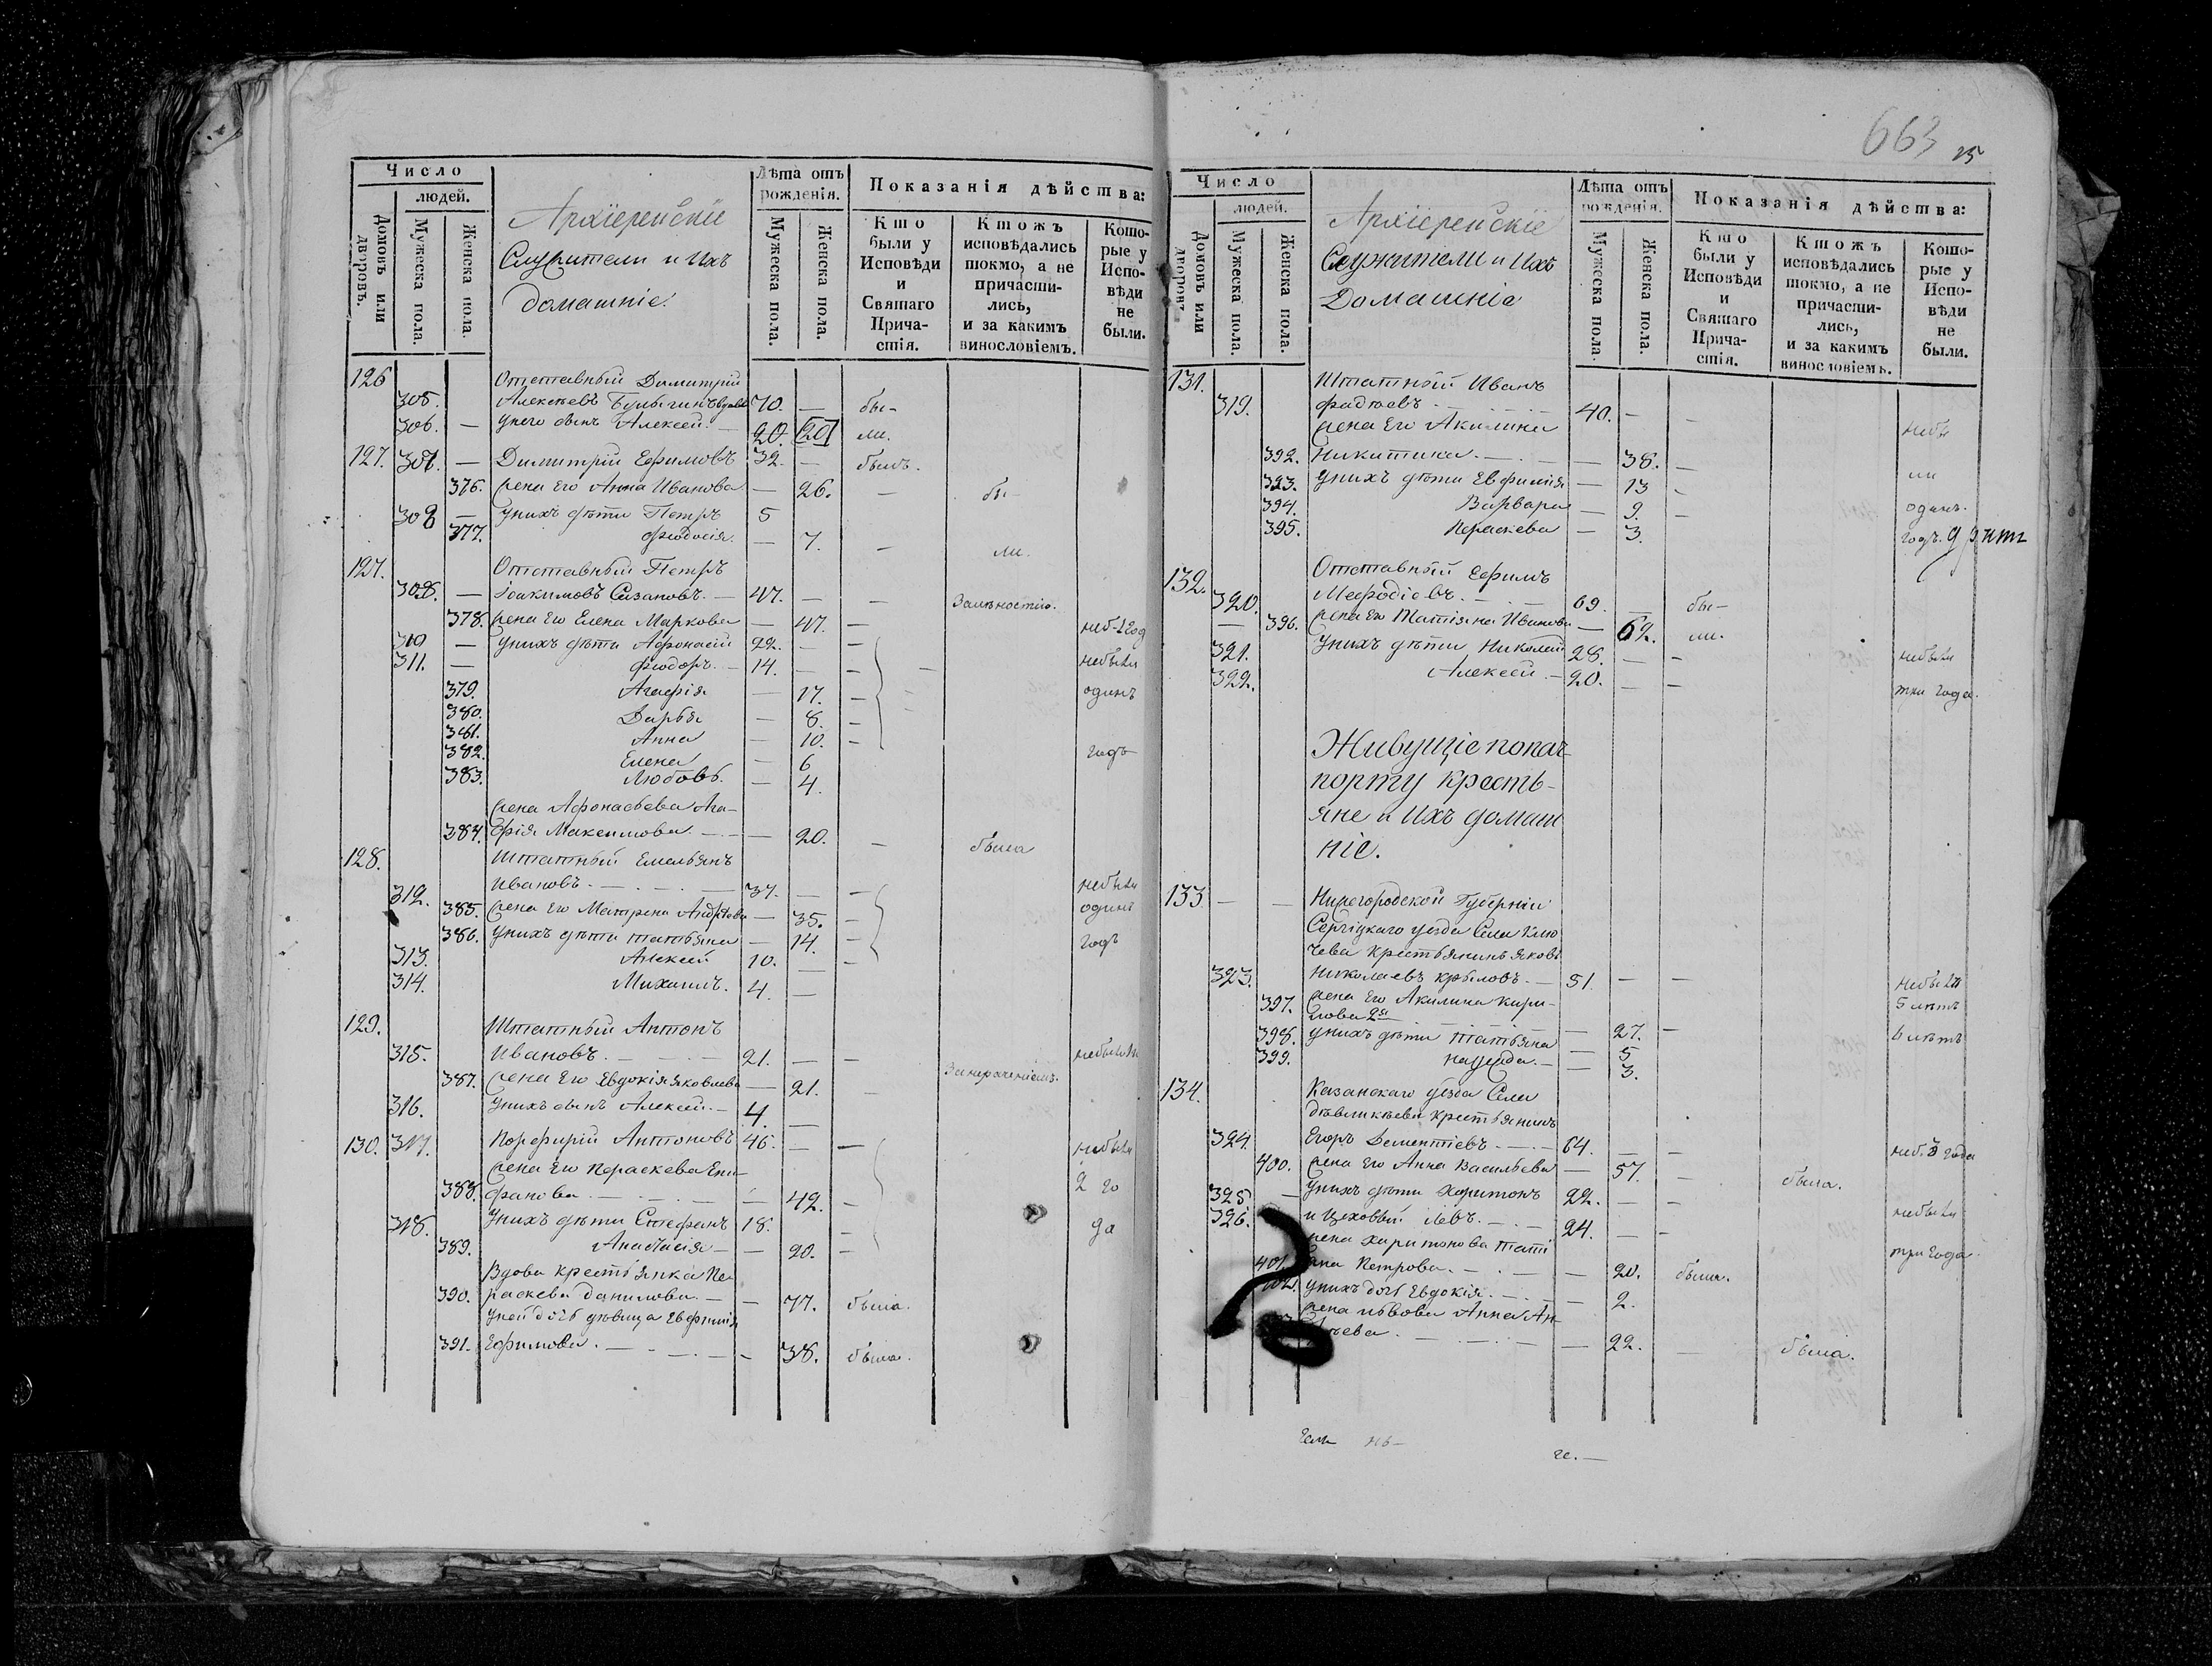 Число
людей.
Домовъ или дворовъ.
Мужеска пола.
Женска пола.
Архіерейскіе
Служители и Ихъ
домашніе.
Лѣта отъ
рожденія.
Мужеска пола.
Женска пола.
Показанія дѣйства:
Кто были у Исповѣди и Святаго Прича-стія.
Ктожъ исповѣдались токмо, а не причасти-лись, и за какимъ винословіемъ.
Кото-рые у Испо-вѣди не были.
126 Отставный Димитрій
305. Алексѣевъ 70. — бы-
306. — у него сынъ Алексей. — 20. 20 ли.
127. 307. — Димитрій Ефимовъ 32. — былъ.
376. жена Его Анна Иванова — 26. — бы-
308 — у нихъ дѣти Петръ 5
377. Феодосія. — 7. — ли.
127. Отставный Петръ
309. — Іоакимовъ Сазановъ. — 47. — —
378. жена Его Елена Маркова — 47. — неб-1 год
310 — у нихъ дѣти Афонасій 22. — —
311. — Феодоръ. — 14. — — небыли
379. Агафія — 17. — одинъ
380. Дарья — 8. —
381. Анна — 10. —
382. Елена — 6 годъ
383. Любовь. — 4.
жена Афонасьева Ага-
384. фія Максимова. — — 20. — была
128. Штатный Емельянъ
312. Ивановъ. — 37. — — небыли
385. жена Его Матрена Андрѣева — 35. — одинъ
386. у нихъ дѣти Татьяна — 14. — годъ
313. Алексей 10. —
314. Михаилъ. 4. —
129. Штатный Антонъ
315. Ивановъ. — 21. — — небыли
387. жена Его Евдокія Яковлева — 21. —
316. у нихъ сынъ Алексей. — 4. —
130. 317. Порфирій Антоновъ 46. — — небыли
жена Его Параскева Епи-
388. фанова. — — 42. — 2 го
318. у нихъ дѣти Стефанъ 18. — да
389. Анастасія — — 20. —
Вдова крестьянка Па-
390. раскева Данилова. — — 77. была.
у ней дочь дѣвица Евфимія
391. Ефимова. — — 38. была.
663 25
Число
людей.
Домовъ или дворовъ.
Мужеска пола.
Женска пола.
Архіерейскіе
Служители и Ихъ
Домашніе
Лѣта отъ
рожденія.
Мужеска пола.
Женска пола.
Показанія дѣйства:
Кто были у Исповѣди и Святаго Прича-стія.
Ктожъ исповѣдались токмо, а не причасти-лись, и за какимъ винословіемъ.
Кото-рые у Испо-вѣди не были.
131. Штатный Иванъ
319. Фадѣевъ — 40. — —
жена Его Акилина небы
392. Никитина. — — 38. — ли
393. у нихъ дѣти Евфимія — 13 —
394. Варвара — 9. — одинъ.
395. Параскева — 3. годъ.
132. Отставный Ефимъ
320. Мефодіевъ. — 69. — бы-
— 396. жена Его Татіяна Иванова — 62. ли.
321. у нихъ дѣти Николай 28. — — небыли
322. Алексей. — 20. — — три года.
Живущіе попаш-
порту кресть-
яне и Ихъ домаш
ніе.
133 — — Нижегородской Губерніи
Сергіцкаго уезда Села Клю
чева Крестьянинъ Яковъ
323. Николаевъ Крыловъ. — 51. — — небыли
397. жена Его Акилина Кири- 5 лѣтъ
лова 2я — 27. —
398. у нихъ дѣти Татьяна — 5 6 лѣтъ
399. надежда. — — 3.
134. Казанскаго уезда Села
крестьянинъ
324. Егоръ Дементіевъ. — 64. — — неб. 3 года
400. жена Его Анна Васильева — 57. — была.
325. — у нихъ дѣти Харитонъ 22. — — небыли
326. и Цеховый Левъ. — 24. — —
жена Харитонова Тати три года.
401. яна Петрова. — — 20. была.
402. у нихъ дочь Евдокія. — — 2.
жена Львова Анна Ан-
— 22. — была.